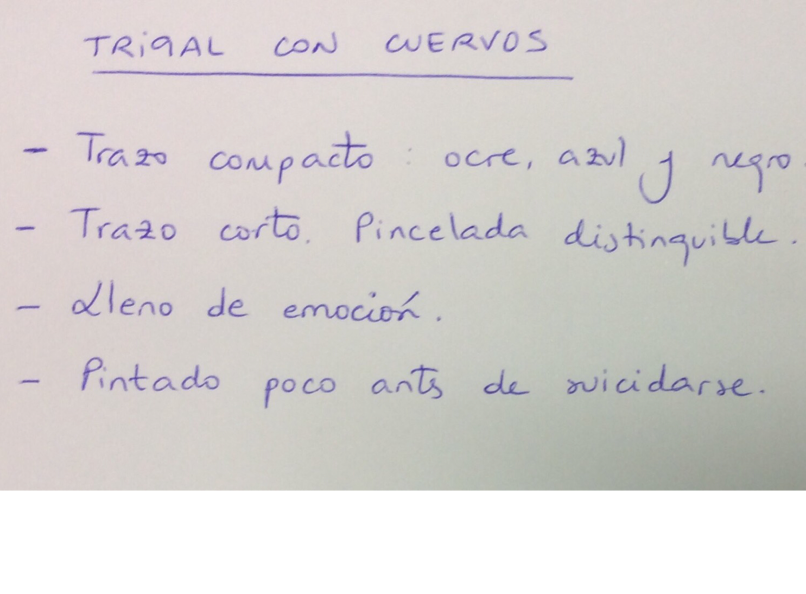 TRIGAL CON CUERVOS
- Trazo compacto: ocre, azul y negro.
- Trazo corto. Pincelada distinguible.
- Lleno de emoción.
- Pintado poco ants de suicidarse.